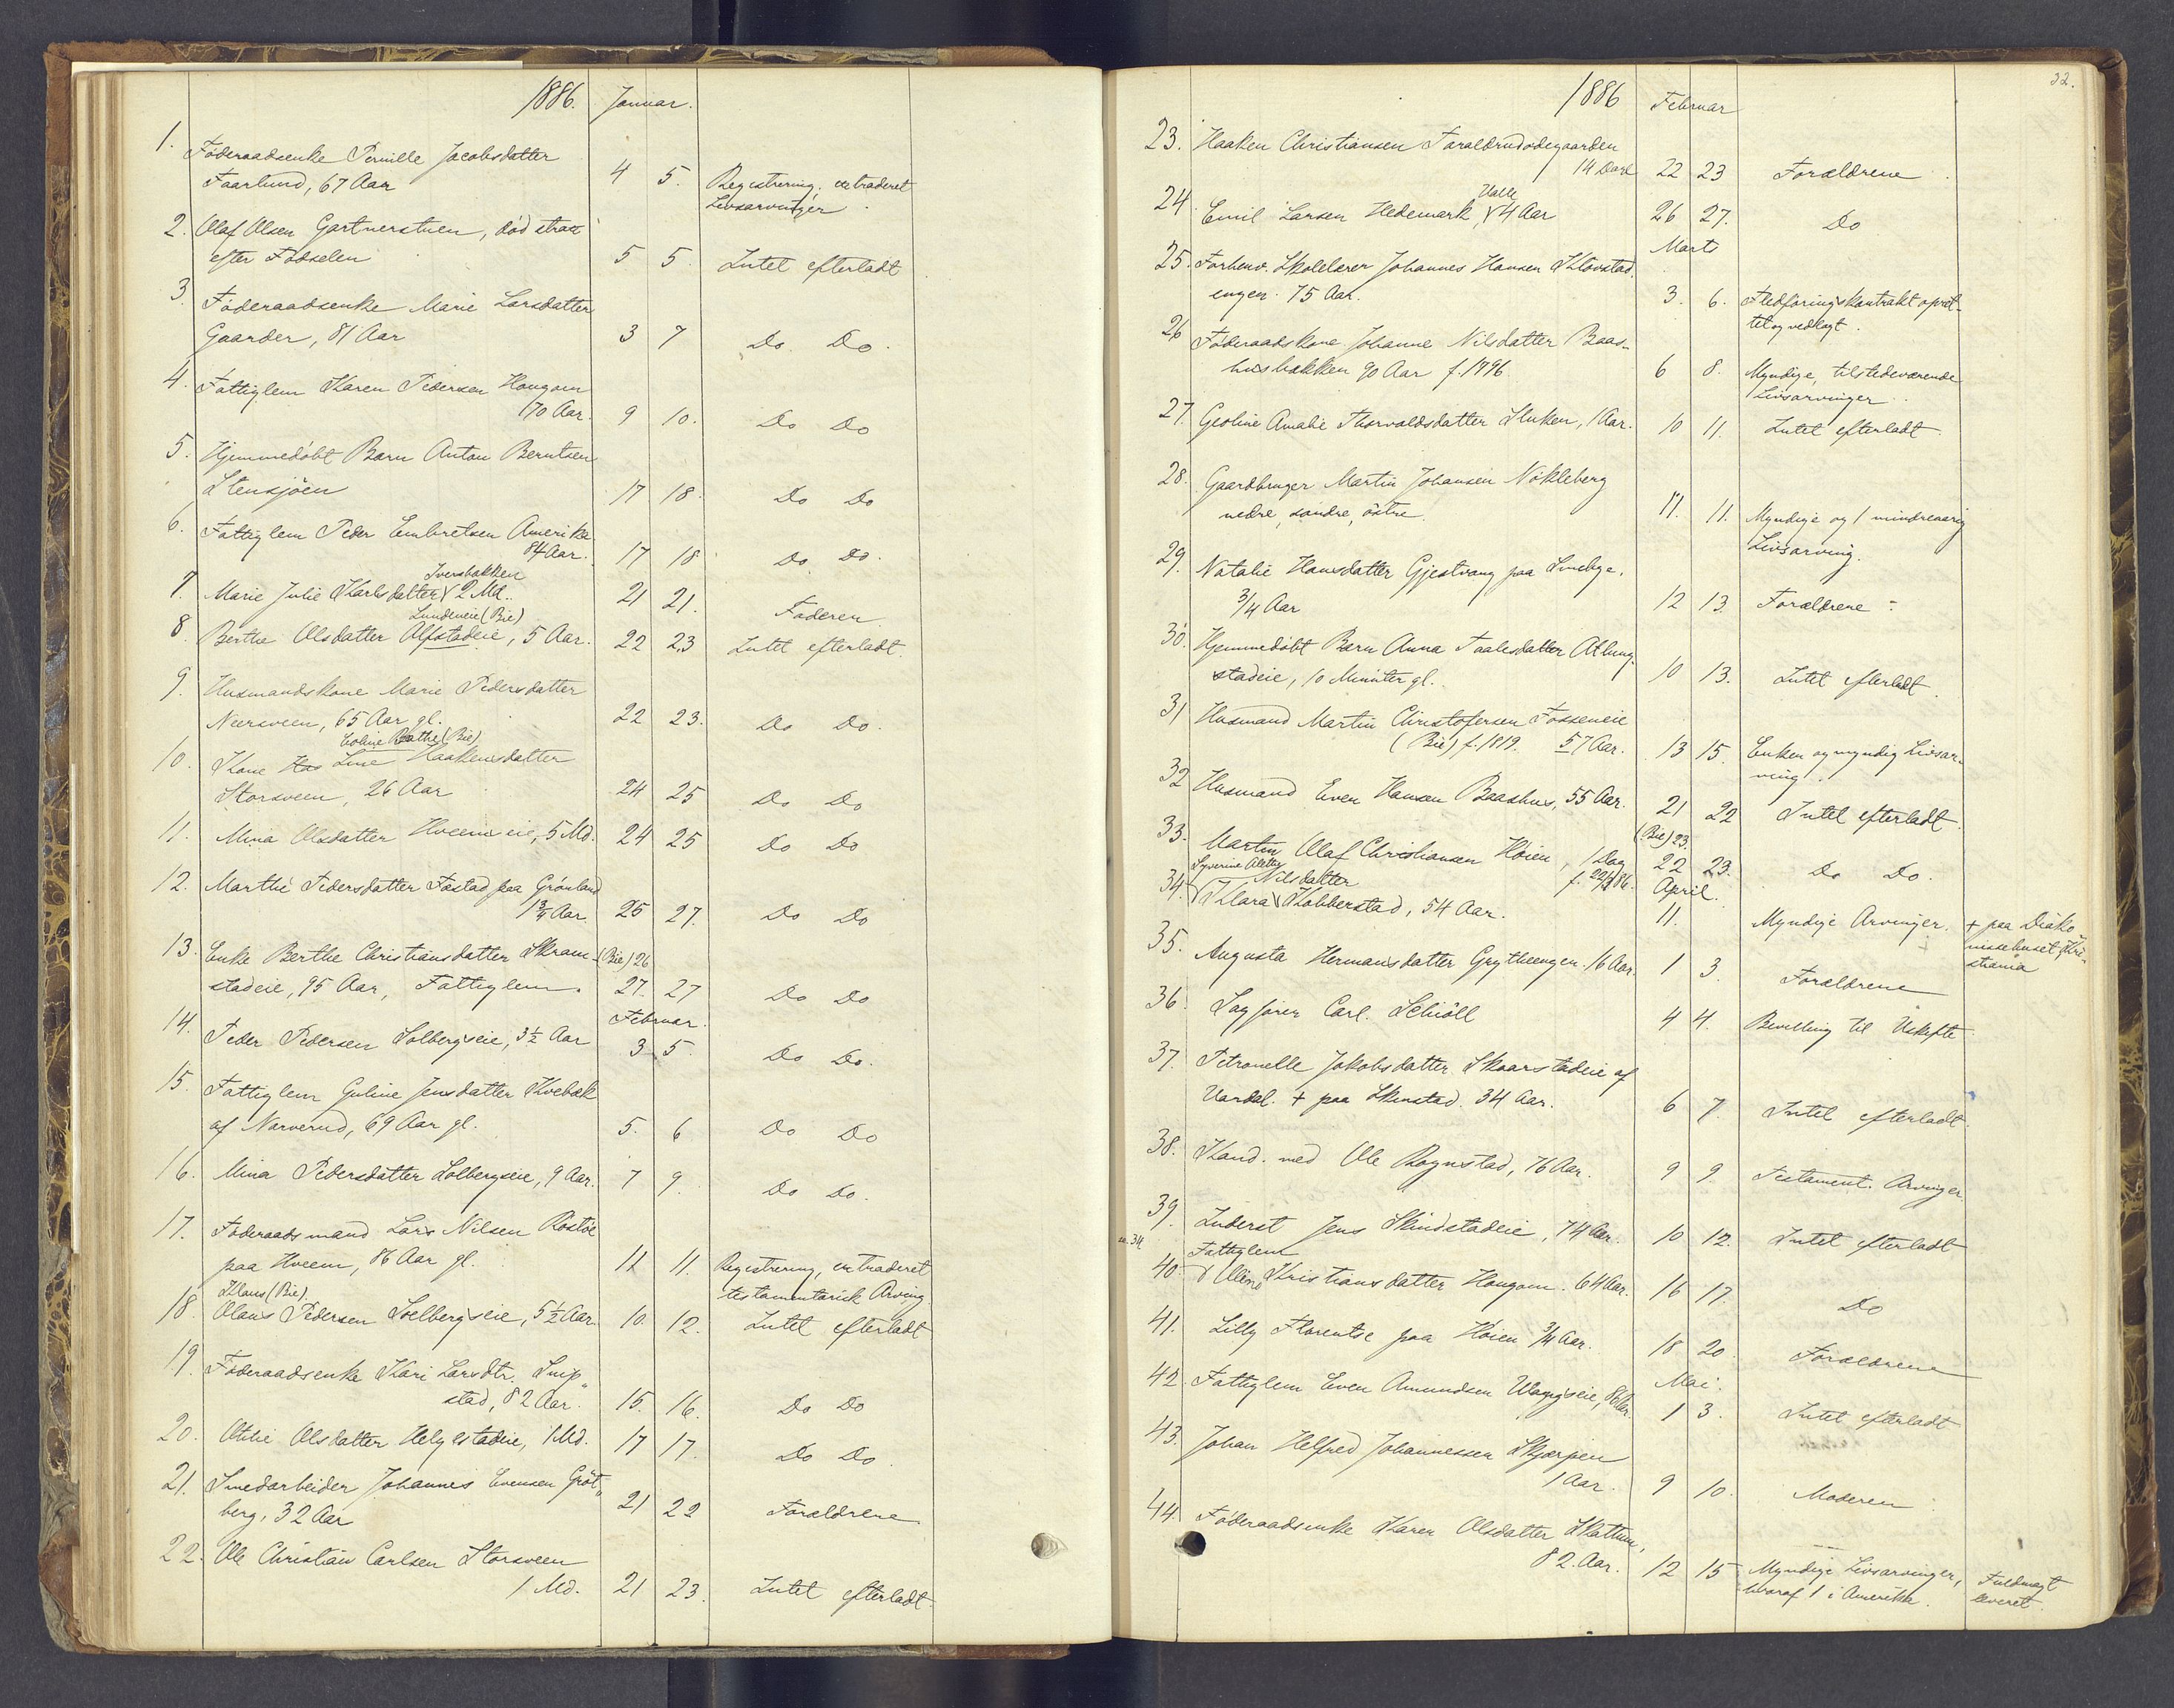 1886. Januar.
1. Föderaadsenke Pernille Jacobsdatter
Faarlund, 67 Aar 4 5. Registrering, extraderet
Livsarvinger.
2. Olaf Olsen Gartnerstuen, död strax
efter Fødselen 5 5. Intet efterladt
3. Föderaadsenke Marie Larsdatter
Gaarder, 81 Aar 3 7 Do Do.
4. Fattiglem Karen Pedersen Hougom
70 Aar. 9 10. Do Do
5. Hjemmedöbt Barn Anton Berntsen
Stensjöen 17 18. Do Do
6. Fattiglem Peder Embretsen Amerika
84 Aar. 17 18 Do Do.
Iversbakken
7. Marie Julie Karlsdatter 2 Md. 21 21. Faderen
Lundeneie (Bie)
8. Berthe Olsdatter Alfstadeie, 5 Aar. 22 23 Intet efterladt.
9. Husmandskone Marie Pedersdatter
Neersveen, 65 Aar gl. 22 23. Do Do.
Eoline Bathe (Bie)
10. Kone Line Haakensdatter
Storsveen, 26 Aar 24 25 Do Do
11. Mina Olsdatter Hveemseie, 5 Md. 24 25 Do Do
12. Marthe Pedersdatter Fostad paa Grönland
1 3/4 Aar. 25 27. Do Do
13. Enke Berthe Christiansdatter Skram- (Bie) 26
stadeie, 95 Aar, Fattiglem. 27. 27 Do Do
Februar.
14. Peder Pedersen Solbergseie, 3 1/2 Aar 3 5. Do Do.
15. Fattiglem Guline Jensdatter Kvebæk
af Narverud, 69 Aar gl. 5. 6 Do Do
16. Mina Pedersdatter Solbergseie, 9 Aar. 7 9. Do Do.
17. Föderaadsmand Lars Nilsen Rostöe
paa Hveem, 86 Aar gl. 11 11. Registrering, extraderet
testamentarisk Arving.
Klaus (Bie).
18. Olaus Pedersen Soelbergseie, 5 1/2 Aar. 10. 12. Intet efterladt
19. Föderaadsenke Kari Larsdtr. Snip„
stad, 82 Aar. 15. 16. Do Do
20. Othie Olsdatter Helgestadeie, 1 Md. 17 17. Do Do.
21. Smedarbeider Johannes Evensen Gröt„
berg, 32 Aar 21 22 Forældrene
22. Ole Christian Carlsen Storsveen
1 Md. 21 23. Intet efterladt.
32.
1886 Februar
23. Haaken Christiansen Faraldrudödegaarden
14 Dage 22 23 Forældrene.
Valle
24. Emil Larsen Hedemark, 4 Aar 26 27. Do
Marts
25. Forhenv. Skolelærer Johannes Hansen Klövstad-
engen. 75 Aar. 3. 6. Fledföringskontrakt opret-
tet og vedlagt.
26 Föderaadskone Johanne Nilsdatter Baas-
husbakken 90 Aar f. 1796. 6 8. Myndige, tilstedeværende
Livsarvinger.
27. Geoline Amalie Thorvaldsdatter Sluken, 1 Aar. 10 11. Intet efterladt.
28. Gaardbruger Martin Johansen Nökleberg
nedre, söndre, östre. 11. 11. Myndige og 1 mindreaarig
Livsarving.
29. Natalie Hansdatter Gjestvang paa Smebye.
3/4 Aar 12 13. Forældrene.
30. Hjemmedöbt Barn Anna Paalsdatter Atlung-
stadeie, 10 Minuter gl. 10 13. Intet efterladt.
31 Husmand Martin Christofersen Fosseneie
(Bie) f. 1819. 57 Aar. 13 15. Enken og myndig Livsar-
ving.
32 Husmand Even Hansen Baashus, 55 Aar. 21 22 Intet efterladt.
(Bie) 23.
33. Martin Olaf Christiansen Höien, 1 Dag 22 23. Do Do.
f. 22/3 86. April.
Syverine Alette Nilsdatter
34. Klara Kobberstad, 54 Aar. 11. Myndige Arvinger. + paa Diako-
nissehuset Kri-
stiania
35. Augusta Hermansdatter Grytheengen. 16 Aar. 1 3. Forældrene
36. Sagförer Carl. Schiöll 4 4. Bevilling til Uskifte
37. Petronelle Jakobsdatter Skaarstadeie af
Vardal. + paa Skenstad. 34 Aar. 6 7. Intet efterladt.
38. Kand. med Ole Rognstad, 76 Aar. 9 9. Testament. Arvinger.
39. Inderst Jens Skindstadeie, 74 Aar. 10 12. Intet efterladt
Fattiglem
40. Oline Kristiansdatter Hougom. 64 Aar. 16 17. Do
41. Lilly Florentse paa Höien 3/4 Aar. 18 20. Forældrene
Mai.
42. Fattiglem Even Amundsen Wangseie, 86 Aar. 1 3. Intet efterladt
43. Johan Helfred Johannessen Skjærpen
1 Aar. 9 10. Moderen
44. Föderaadsenke Karen Olsdatter Skattum,
82. Aar. 12 15 Myndige Livsarvinger, Fuldmagt
hvoraf 1 i Amerika. leveret.